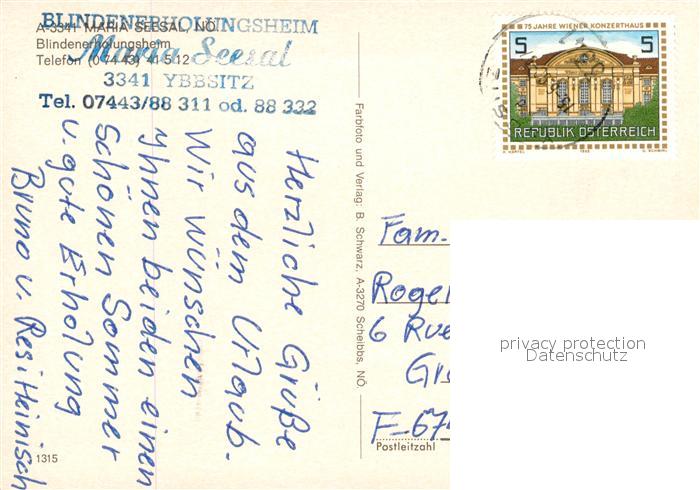 BLINDENERHOLUNGSHEIM
A-3341 MARIA SEESAL, NÖ.
Blindenerholungsheim
Maria Seesal
Telefon (0 74 43) 41 5 12
3341 YBBSITZ
Tel. 07443/88 311 od. 88 332
Herzliche Grüße
aus dem Urlaub.
Wir wünschen
Ihnen beiden einen
Schönen Sommer
u. gute Erholung
Bruno u. Resi Heinisch
1315
Farbfoto und Verlag: B. Schwarz, A-3270 Scheibbs, NÖ.
75 JAHRE WIENER KONZERTHAUS
5 5
REPUBLIK ÖSTERREICH
Fam.
Roge
6 Rue
F-67
Postleitzahl
privacy protection
Datenschutz